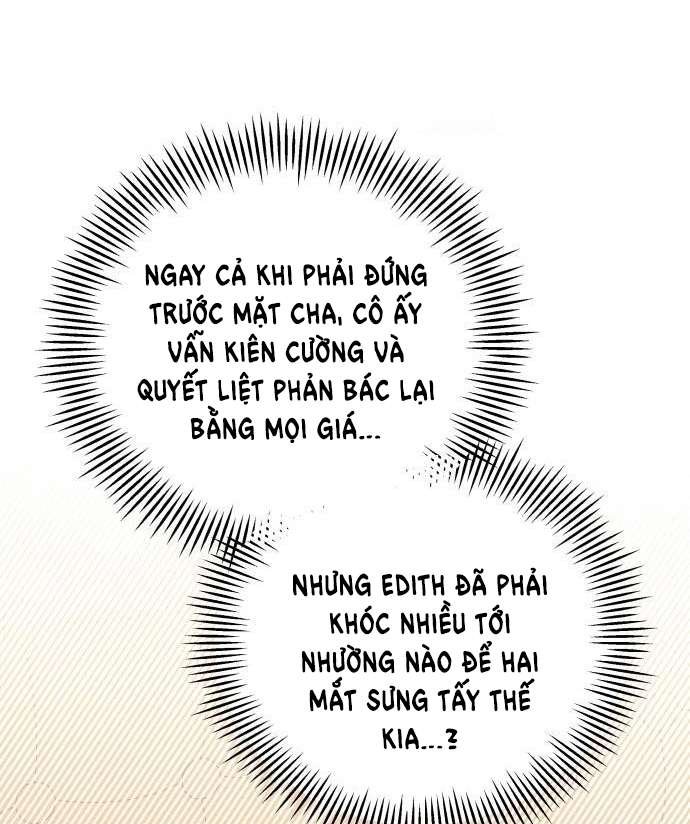 NGAY CẢ KHI PHẢI ĐỨNG
TRƯỚC MẶT CHA, CÔ ẤY
VẪN KIÊN CƯỜNG VÀ
QUYẾT LIỆT PHẢN BÁC LẠI
BẰNG MỌI GIÁ...
NHƯNG EDITH ĐÃ PHẢI
KHÓC NHIỀU TỚI
NHƯỜNG NÀO ĐỂ HAI
MẮT SƯNG TẤY THẾ
KIA...?